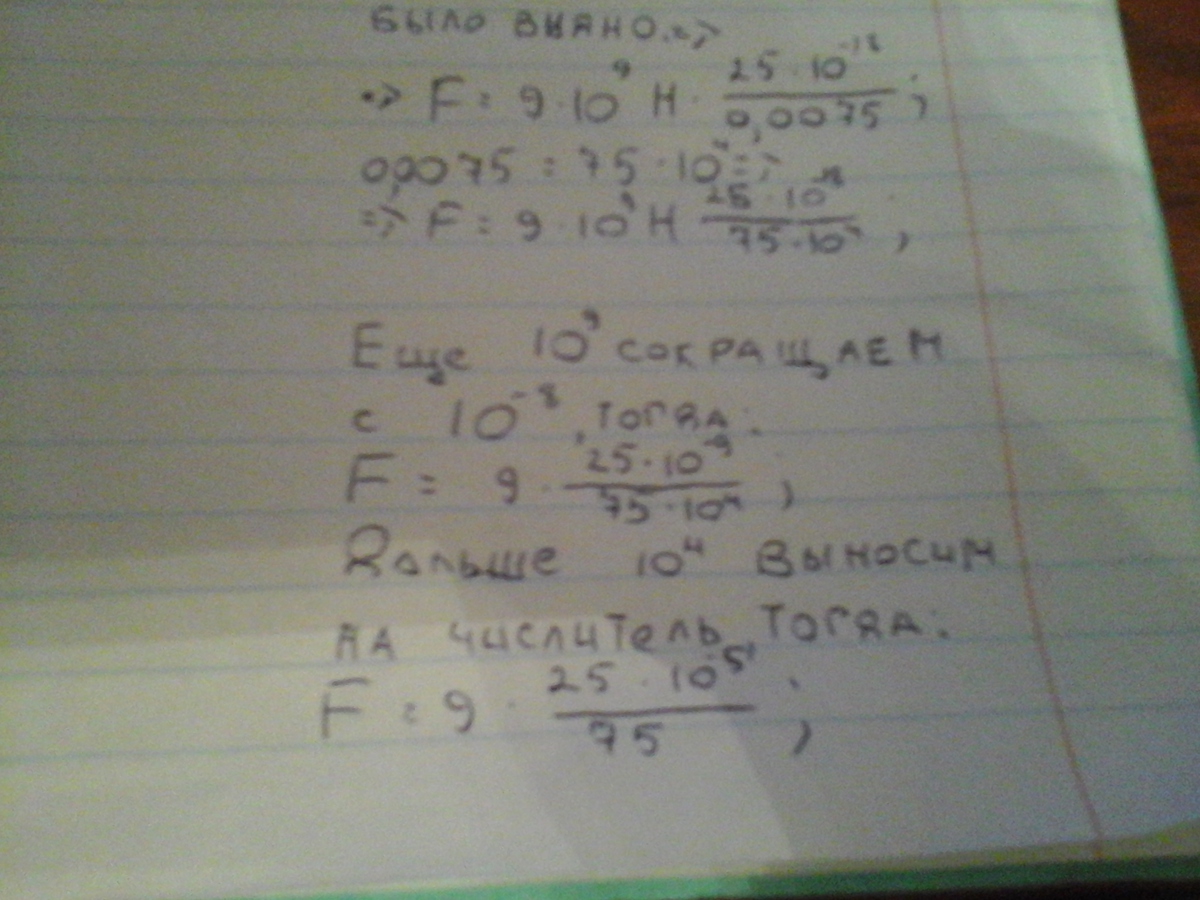 было видно. =>
=> F = 9 · 10⁹ Н · 25 · 10⁻¹⁸ / 0,0075 ;
0,0075 = 75 · 10⁻⁴ =>
=> F = 9 · 10⁹ Н 25 · 10⁻¹⁸ / 75 · 10⁻⁴ ;
Еще 10⁹ сокращаем
с 10⁻¹⁸, тогда:
F = 9 · 25 · 10⁻⁹ / 75 · 10⁻⁴ ;
Дальше 10⁴ выносим
на числитель, тогда:
F = 9 · 25 · 10⁻⁵ / 75 ;